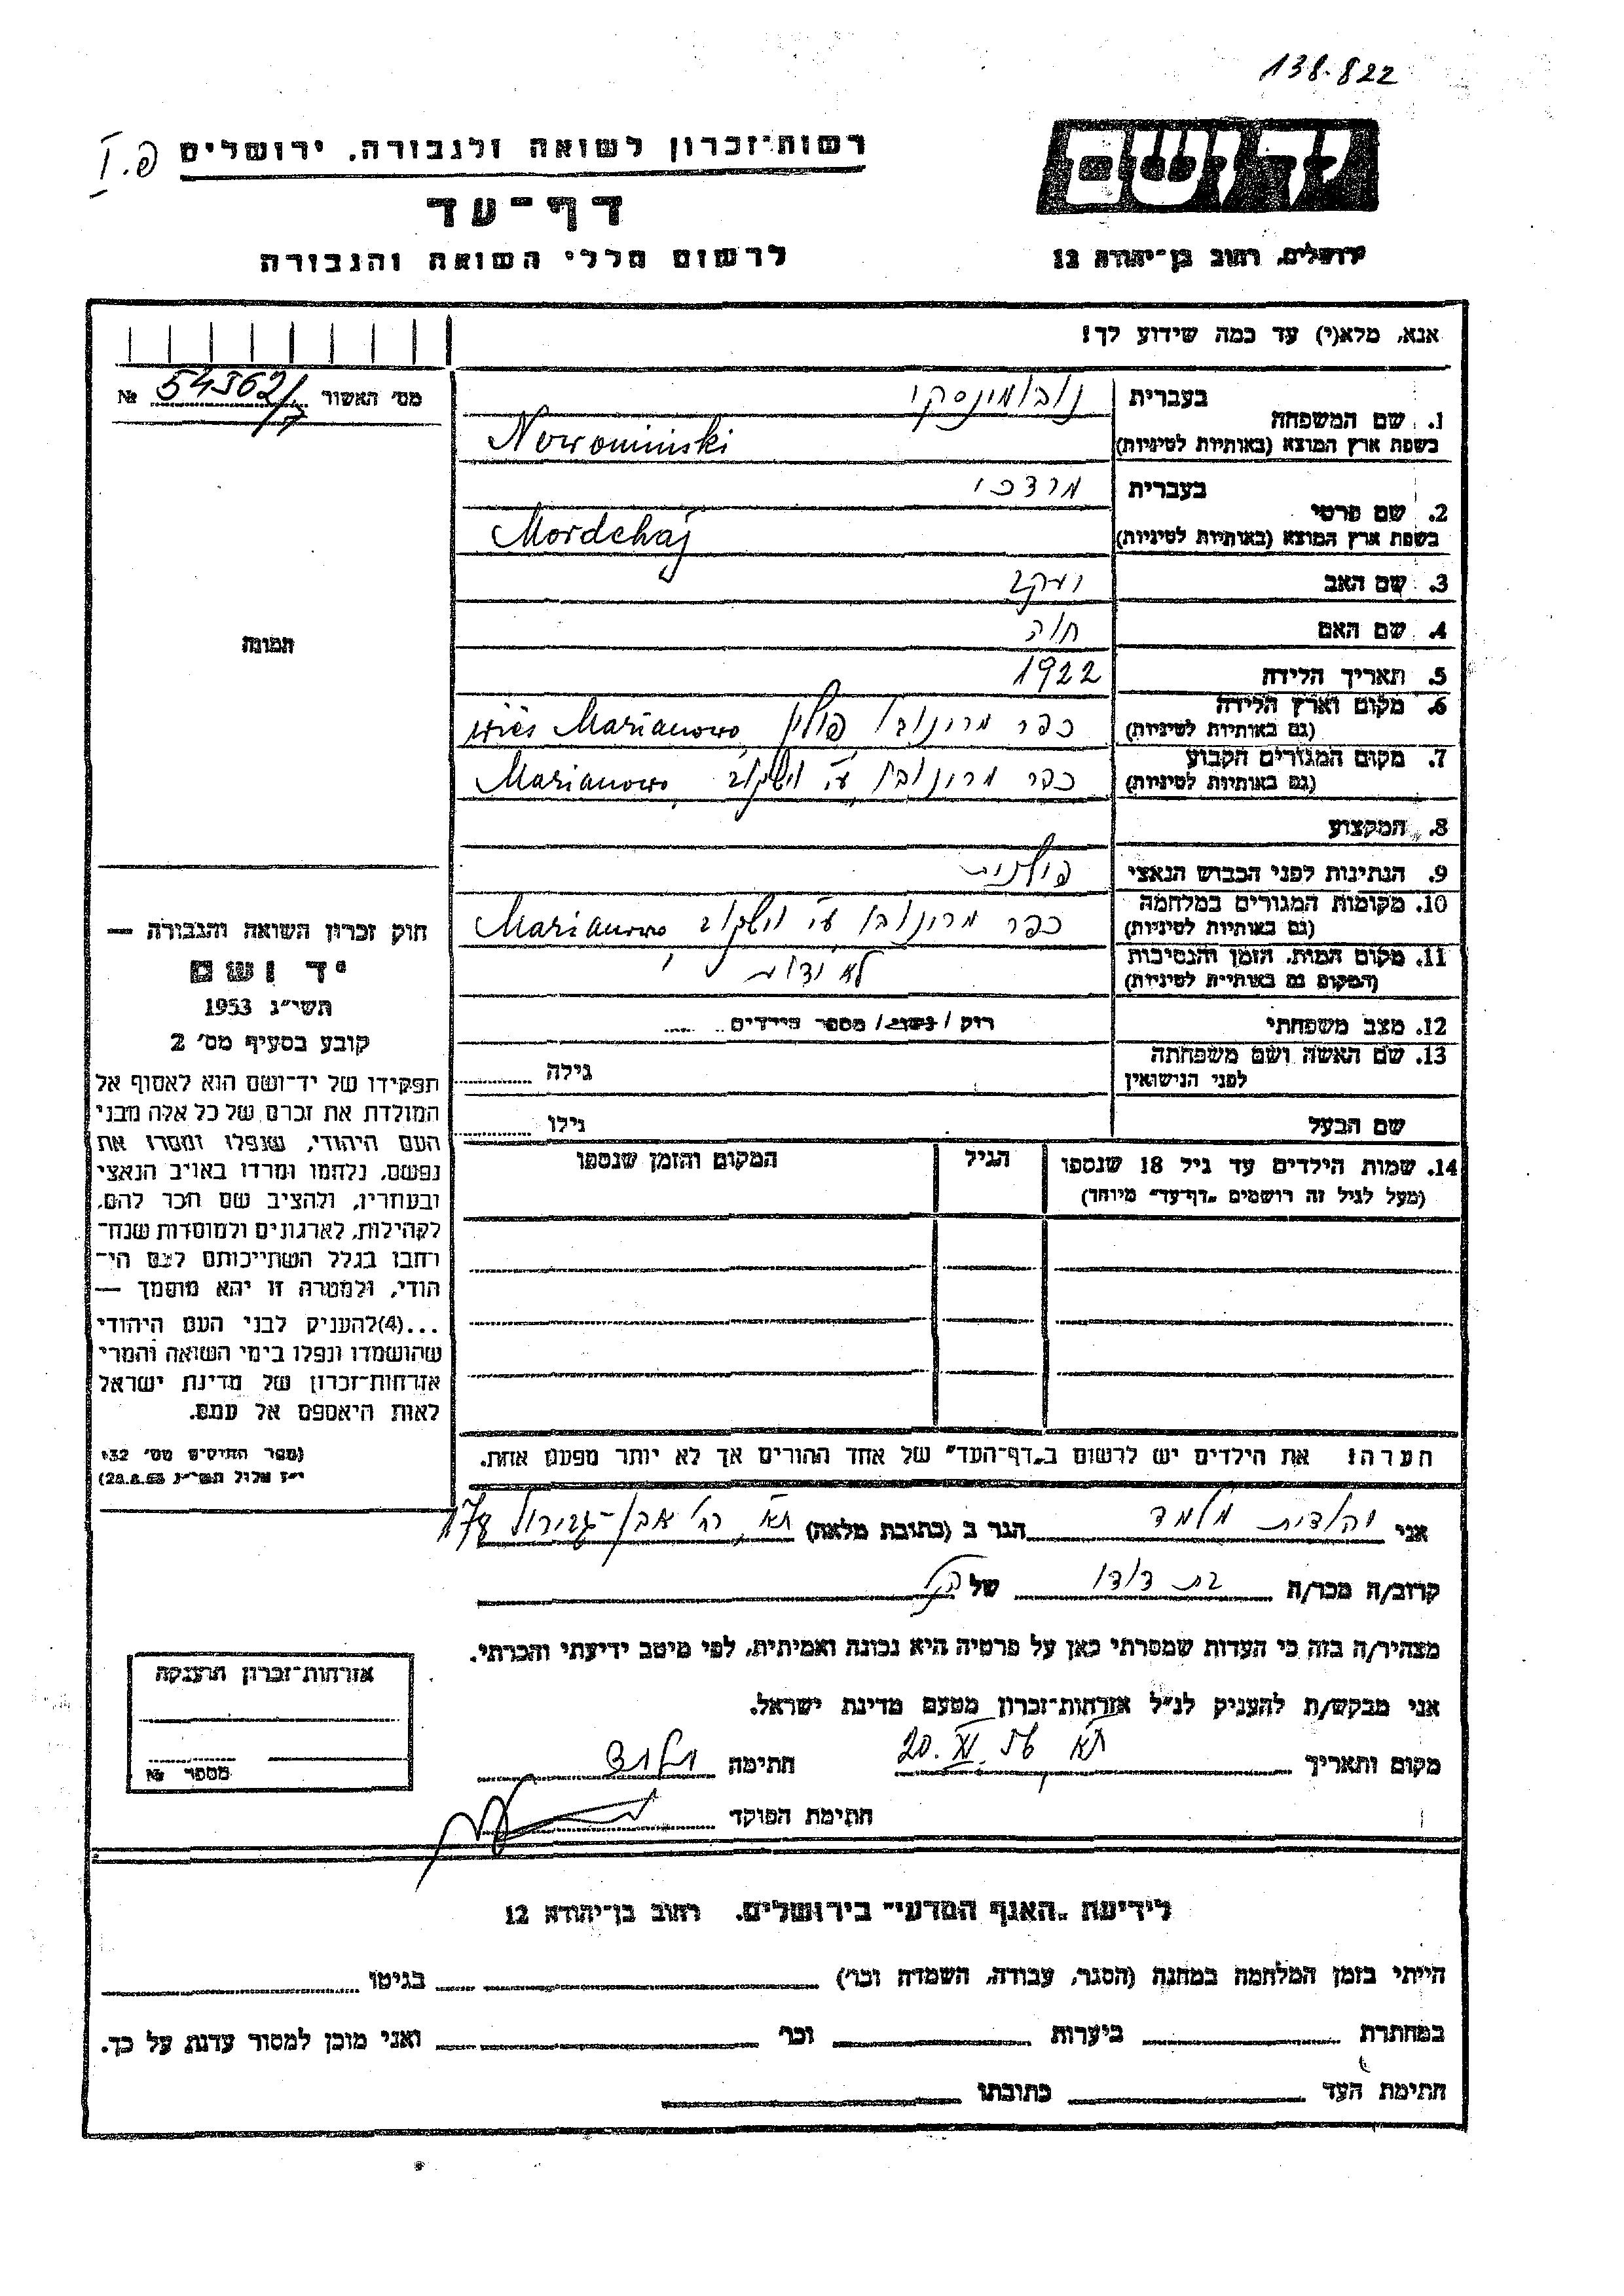 138.822
רשות־זכרון לשואה ולגבורה, ירושלים
פ. I
דף־עד
לרשום חללי השואה והגבורה
יד ושם
ירושלים, רחוב בן־יהודה 12
אנא, מלא(י) עד כמה שידוע לך!
מס׳ האשור 54562/7 №
1. שם המשפחה
בעברית נובומינסקי
בשפת ארץ המוצא (באותיות לטיניות) Nowominski
2. שם פרטי
בעברית מרדכי
בשפת ארץ המוצא (באותיות לטיניות) Mordchaj
3. שם האב יעקב
4. שם האם חוה
5. תאריך הלידה 1922
6. מקום וארץ הלידה
(גם באותיות לטיניות) כפר מרינובו פולין wieś Marianowo
7. מקום המגורים הקבוע
(גם באותיות לטיניות) כפר מרינובו ע״י Marianowo
8. המקצוע
9. הנתינות לפני הכבוש הנאצי פולנית
10. מקומות המגורים במלחמה
(גם באותיות לטיניות) כפר מרינובו ע״י Marianowo
11. מקום המות, הזמן והנסיבות
(המקום גם באותיות לטיניות) לא ידוע
12. מצב משפחתי רוק / נשוי / מספר הילדים
13. שם האשה ושם משפחתה
לפני הנישואין גילה
שם הבעל גילו
14. שמות הילדים עד גיל 18 שנספו
(מעל לגיל זה רושמים „דף־עד״ מיוחד)
הגיל
המקום והזמן שנספו
תמונה
חוק זכרון השואה והגבורה —
יד ושם
תשי״ג 1953
קובע בסעיף מס׳ 2
תפקידו של יד־ושם הוא לאסוף אל
המולדת את זכרם של כל אלה מבני
העם היהודי, שנפלו ומסרו את
נפשם, נלחמו ומרדו באויב הנאצי
ובעוזריו, ולהציב שם וזכר להם,
לקהילות, לארגונים ולמוסדות שנח־
רבו בגלל השתייכותם לעם הי־
הודי, ולמטרה זו יהא מוסמך —
...(4)להעניק לבני העם היהודי
שהושמדו ונפלו בימי השואה והמרי
אזרחות־זכרון של מדינת ישראל
לאות היאספם אל עמם.
(ספר החוקים מס׳ 132
י״ז אלול תשי״ג 28.8.53)
הערה! את הילדים יש לרשום ב„דף־העד״ של אחד ההורים אך לא יותר מפעם אחת.
אני יהודית מלמד הגר ב (כתובת מלאה) ת״א, רח׳ אבן־גבירול 178
קרוב/ה מכר/ה בת דודו של
מצהיר/ה בזה כי העדות שמסרתי כאן על פרטיה היא נכונה ואמיתית, לפי מיטב ידיעתי והכרתי.
אני מבקש/ת להעניק לנ״ל אזרחות־זכרון מטעם מדינת ישראל.
מקום ותאריך ת״א 20. XI. 56 חתימה
חתימת הפוקד
אזרחות־זכרון הוענקה
מספר №
לידיעת „האגף המדעי״ בירושלים, רחוב בן־יהודה 12
הייתי בזמן המלחמה במחנה (הסגר, עבודה, השמדה וכו׳) בגיטו
במחתרת ביערות וכו׳ ואני מוכן למסור עדות על כך.
חתימת העד כתובתו